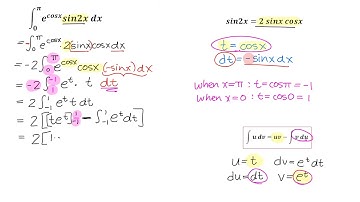 ∫₀^π e^cosx sin2x dx
= ∫₀^π e^cosx · 2(sinx)cosx dx
= -2 ∫₀^π e^cosx cosx (-sinx) dx
= -2 ∫₁^-1 e^t · t dt
= 2 ∫₋₁^1 e^t t dt
= 2 [[te^t]₋₁^1 - ∫₋₁^1 e^t dt]
= 2 [1·
sin2x = 2 sinx cosx
t = cosx
dt = -sinx dx
when x=π : t = cosπ = -1
when x=0 : t = cos0 = 1
∫ u dv = uv - ∫ v du
u = t dv = e^t dt
du = dt v = e^t